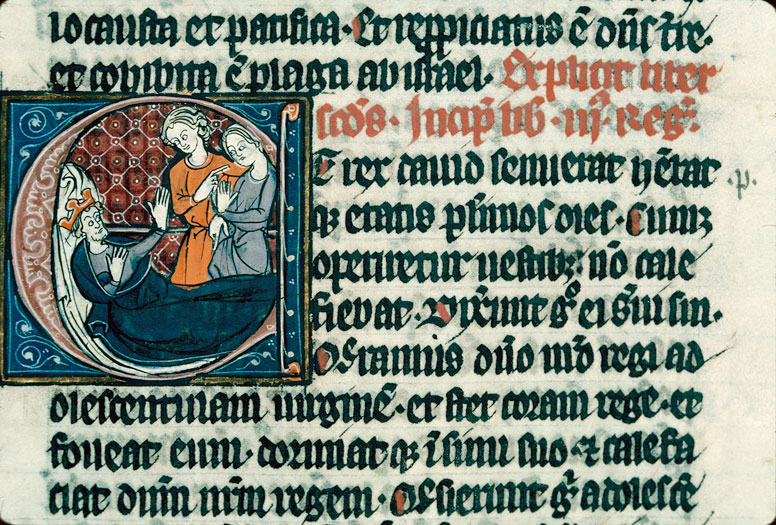 locausta et pacifica. Et ꝓpiciatus ē dn̄s t̄re.
et cohibita ē plaga ab israel. Explicit liber
scd̄s. Incip̄ lib̄. iij. reḡ.
T rex dauid senuerat h̄ebat
qꝫ etatis plimos dies. Cumqꝫ
operiretur uestibꝫ: nō cale
fiebat. Dixerunt gͦ ei serui sui.
Q̄ramus dn̄o nr̄o regi ad
olescentulam uirginē. et stet coram rege. et
foueat eum. dormiat qꝫ ī sinu suo ⁊ calefa
ciat dnm̄ nrm̄ regem. Q̄sierunt gͦ adolescē
.p.